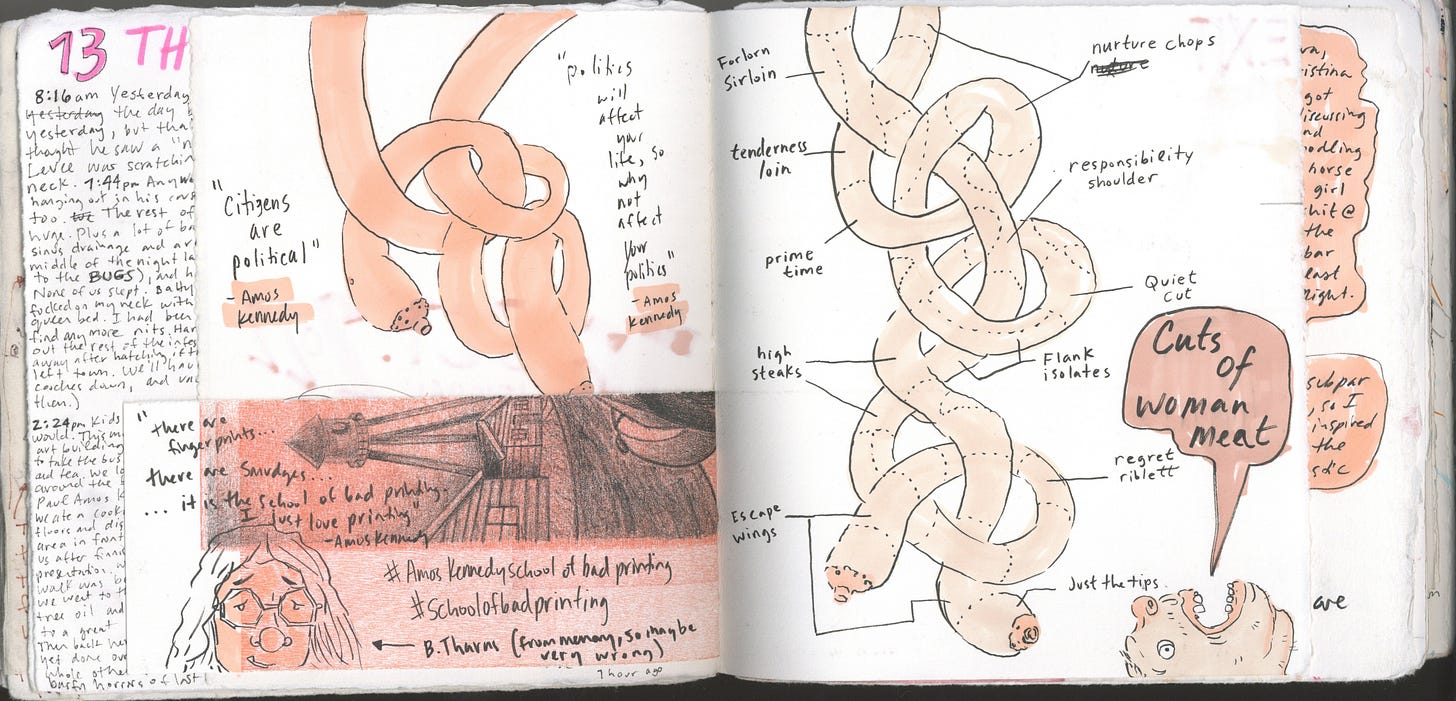 13 TH
8:16am Yesterday
yesterday the day
yesterday, but tha
thought he saw a "n
Levee was scratchin
neck. 7:44pm Anyw
hanging out in his
too. The rest of
huge. Plus a lot of
sinus drainage and
middle of the night la
to the BUGS), and h
None of us slept.
fucked on my neck with
queen bed. I had been
find any more nits.
out the rest of the
away after hatching, if
left town. We'll hav
couches down, and
then.)
2:24pm Kids
would. This
art building
to take the bus
and tea. We
around the
Paul Amos K
We ate a
floors and
area in front
us after
presentation.
walk was
we went to
tree oil and
to a great
Then back
yet done
whole other
barfy horrors of last
"Citizens
are
political"
- Amos
Kennedy
"politics
will
affect
your
life, so
why
not
affect
your
politics"
- Amos
Kennedy
"there are
fingerprints...
there are smudges...
... it is the school of bad printing.
I just love printing"
- Amos Kennedy
# Amos Kennedy school of bad printing
#schoolofbadprinting
B. Tharm (from memory, so maybe
very wrong)
1 hour ago
Forlorn
Sirloin
nurture chops
nurture
tenderness
loin
responsibility
shoulder
prime
time
Quiet
cut
high
steaks
Flank
isolates
Cuts
of
woman
meat
regret
riblett
Escape
wings
Just the tips
ra,
istina
got
discussing
nd
oodling
horse
girl
shit @
the
bar
last
night.
subpar
, so I
inspired
the
are